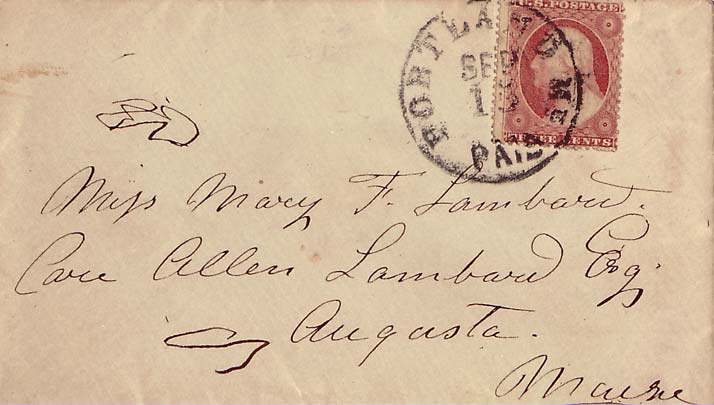 U.S. POSTAGE
THREE CENTS
PORTLAND ME
SEP
PAID
Miss Mary F. Lambard.
Care Allen Lambard Esq;
Augusta.
Maine